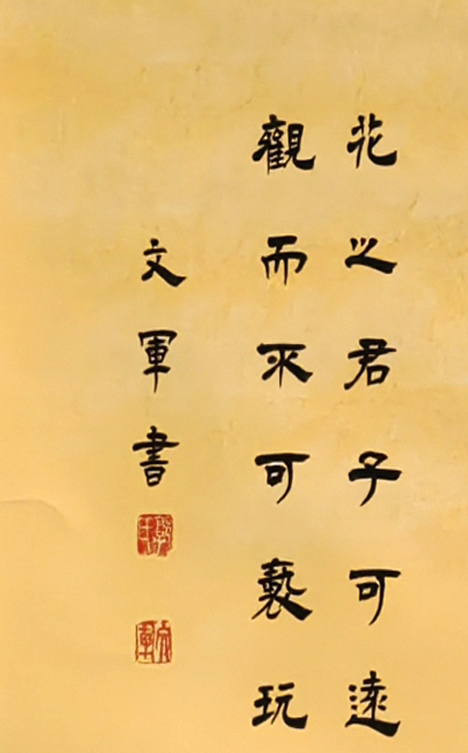 花之君子可遠
觀而不可褻玩
文軍書